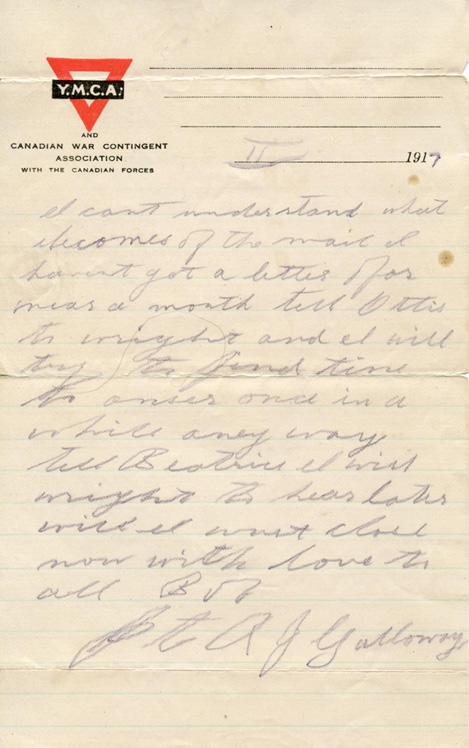 Y.M.C.A.
AND
CANADIAN WAR CONTINGENT
ASSOCIATION
WITH THE CANADIAN FORCES
II 1917
I cant understand what
becomes of the mail I
havent got a letter for
near a month tell Ottis
to wright and I will
try to find time
to anser once in a
while aney way
tell Beatrice I will
wright to hear later
well I must close
now with love to
all Bob
Pte R J Galloway